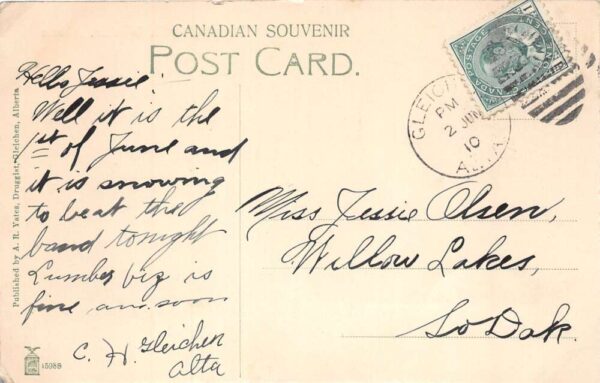 CANADIAN SOUVENIR
POST CARD.
Hello Jessie:
Well it is the
1st of June and
it is snowing
to beat the
band tonight
Lumber biz is
fine, ans. soon
C. H. Gleichen
Alta
Published by A. R. Yates, Druggist, Gleichen, Alberta.
15088
GLEICHEN
PM
2 JUN
10
ALTA
CANADA POSTAGE
Miss Jessie Olsen,
Willow Lakes,
So Dak.